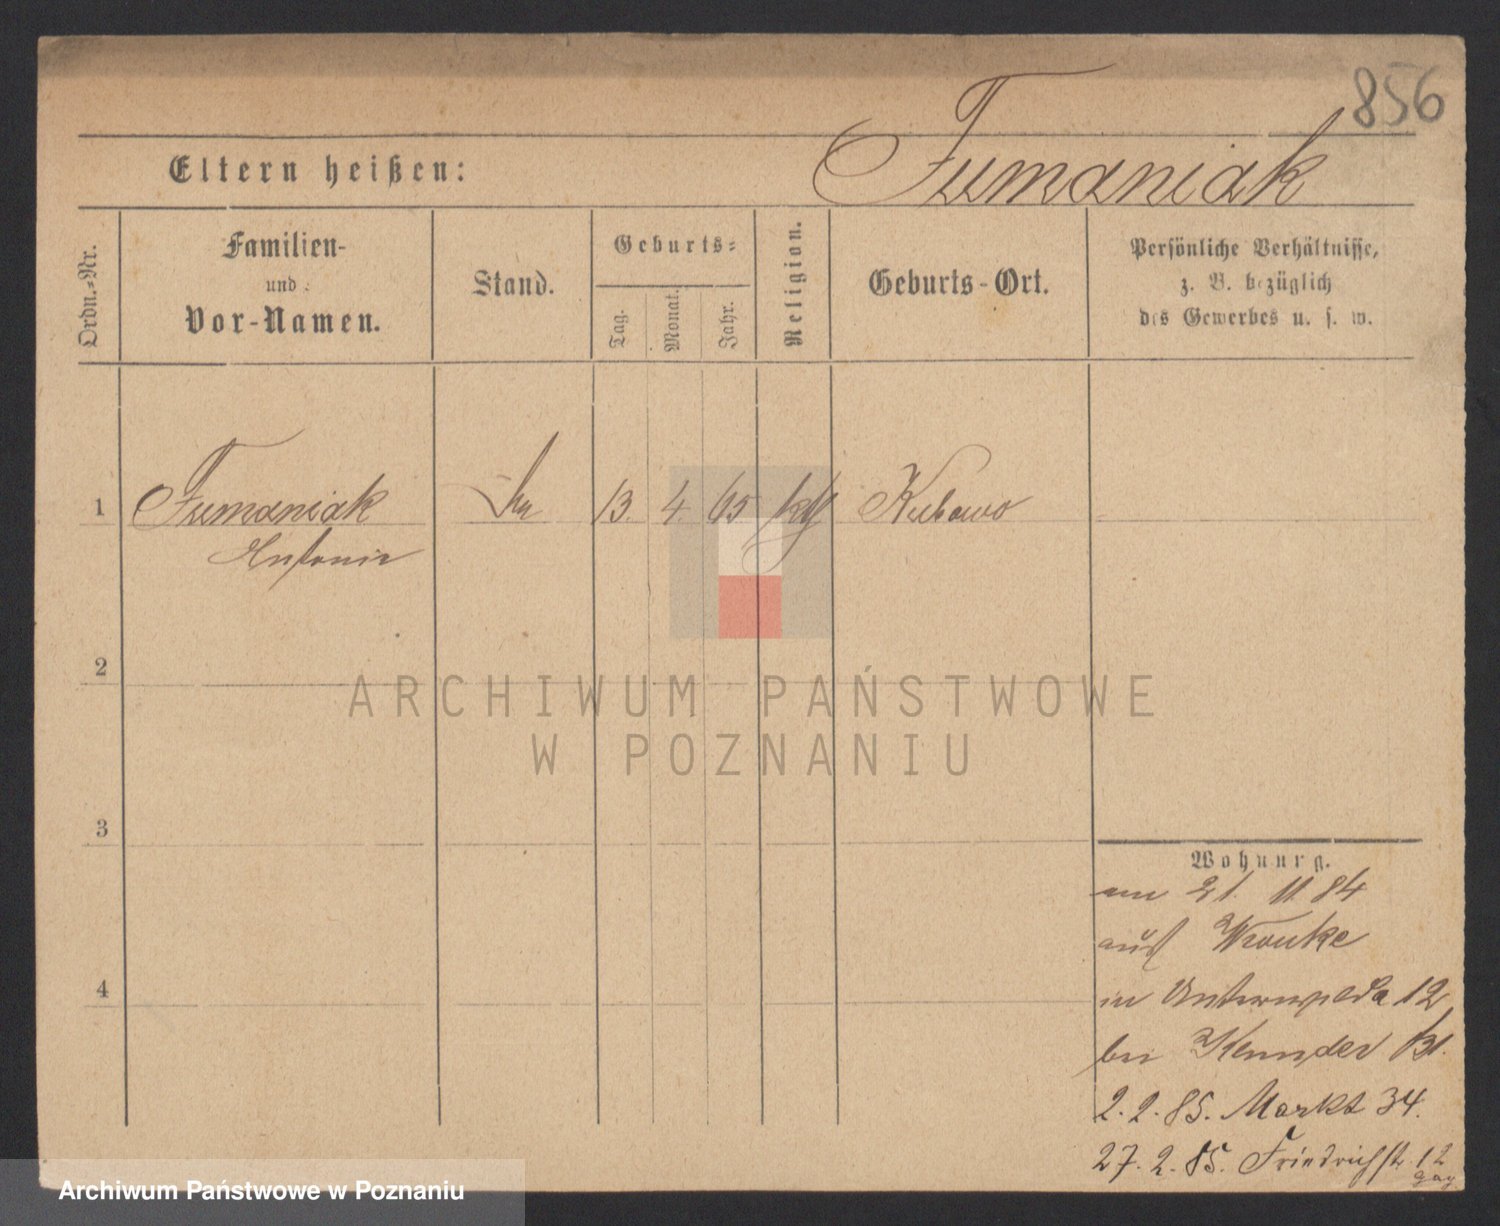 856
Eltern heißen:
Fumaniak
Ordn.-Nr.
Familien-
und
Vor-Namen.
Stand.
Geburts-
Tag.
Monat.
Jahr.
Religion.
Geburts-Ort.
Persönliche Verhältnisse,
z. B. bezüglich
des Gewerbes u. s. w.
1 Fumaniak 13. 4. 65 kth
Antonie
2
ARCHIWUM PAŃSTWOWE
W POZNANIU
3
Wohnung.
am 21. 11 84
aus Wronke
4
in 12
bei
2. 2. 85. Markt 34.
27. 2. 85. Friedrichstr. 12
Archiwum Państwowe w Poznaniu